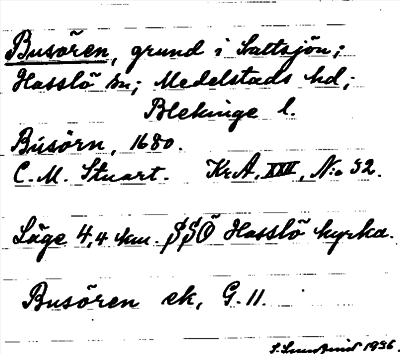 Busören, grund i Saltsjön;
Hasslö sn; Medelstads hd;
Blekinge l.
Busörn, 1680.
C. M. Stuart. Kr.A. XXV, N:o 32.
Läge 4,4 km. SSÖ Hasslö kyrka.
Busören ek, G. 11.
1936.